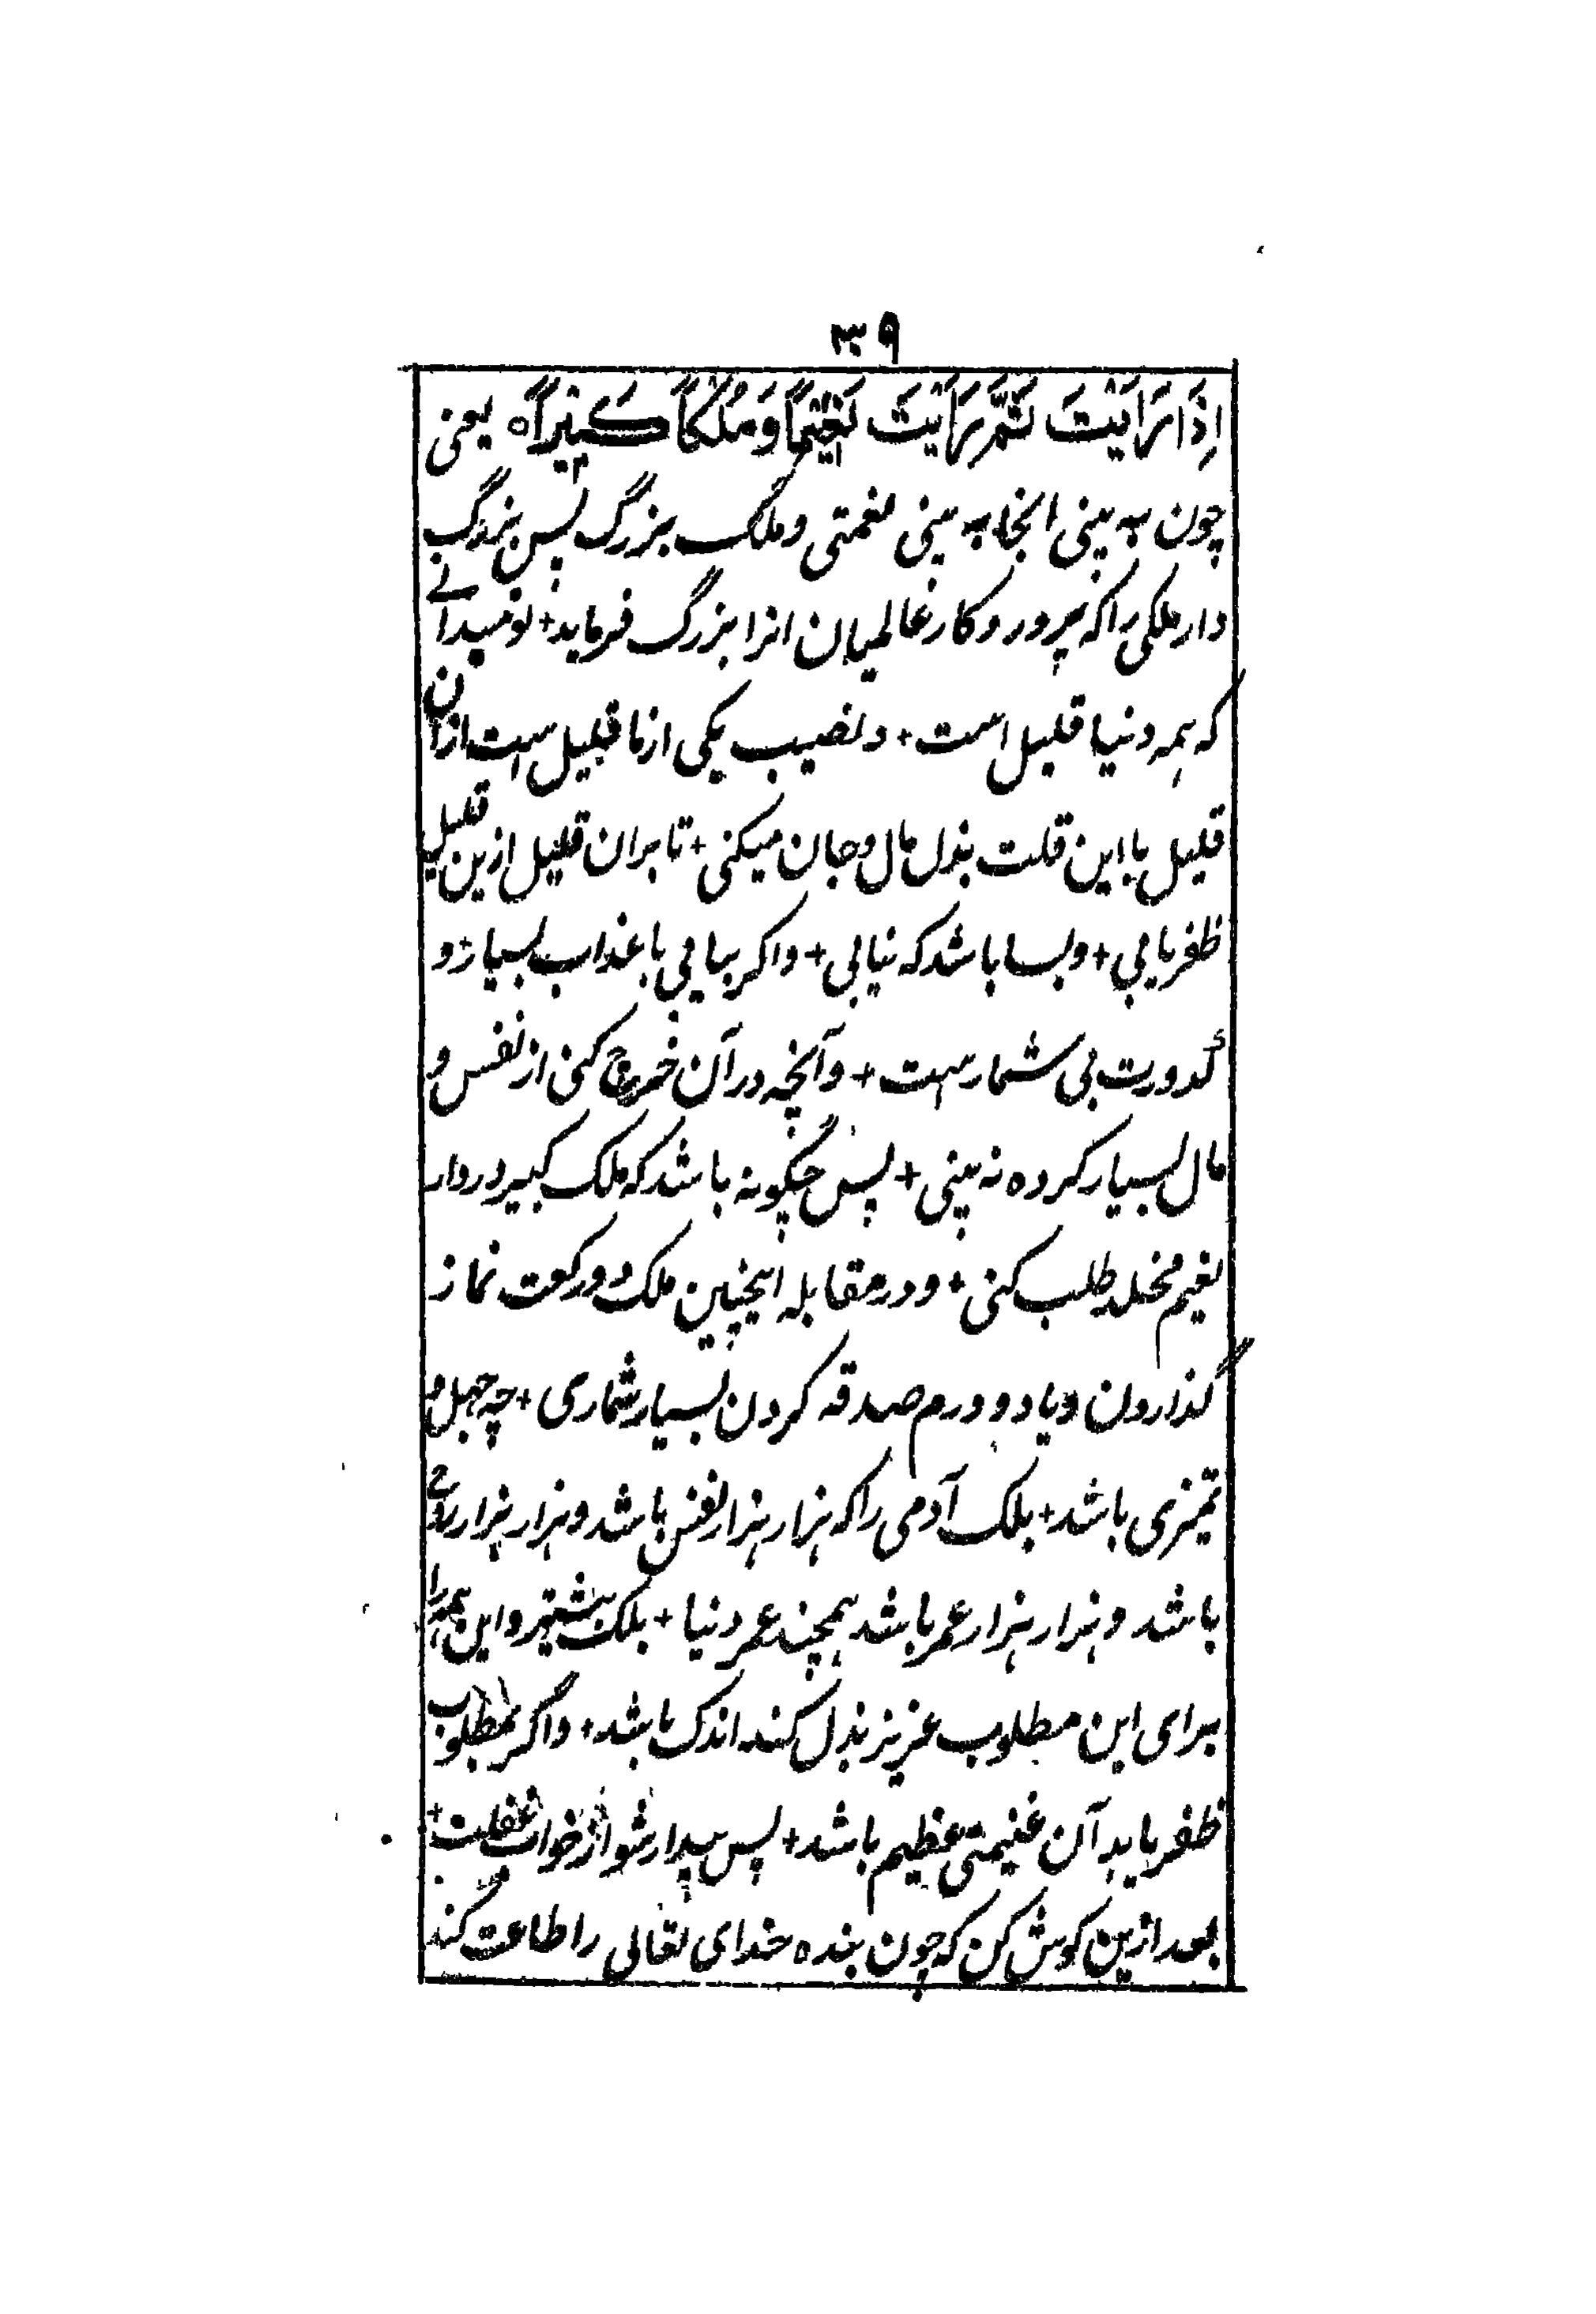 ۳۹
اِذَا رَاَیْتَ ثَمَّ رَاَیْتَ نَعِیْمًا وَمُلْکًا کَبِیْرًاہ یعنی
چون بہ بینی انجا بہ بینی نعمتی و ملک بزرگ پس بزرگ
دار ملکی را کہ پروردکار عالمیان انرا بزرگ فرماید+ تو میدانے
کہ ہمہ دنیا قلیل است+ و نصیب یکی از ما قلیل است ازان
قلیل با این قلت بذل مال و جان میکنی+ تا بران قلیل ازین قلیل
ظفر یابی+ و بسا باشد کہ نیابی+ و اکر بیابی با عذاب بسیار و
کدورت بی شمارست+ و آنچہ در آن خرچ کنی از نفس و
مال بسیار کردہ نہ بینی+ پس چگونہ باشد کہ ملک کبیر در دار
نعیم مخلد طلب کنی+ و در مقابلہ اینچنین ملک دو رکعت نماز
گذاردن و یا دو درم صدقہ کردن بسیار شماری+ چہ جہل و
تمیزی باشد+ بلک آدمی را کہ ہزار ہزار نفس باشد و ہزار ہزار روح
باشد و ہزار ہزار عمر باشد ہمچند عمر دنیا+ بلک بیشتر و این ہمہ را
برای این مطلوب عزیز بذل کند اندک باشد+ و اگر بمطلوب
ظفر یابد آن غنیمتی عظیم باشد+ پس بیدار شو از خواب غفلت+
بعد ازین کوش کن کہ چون بندہ خدای تعالی را طاعت کند